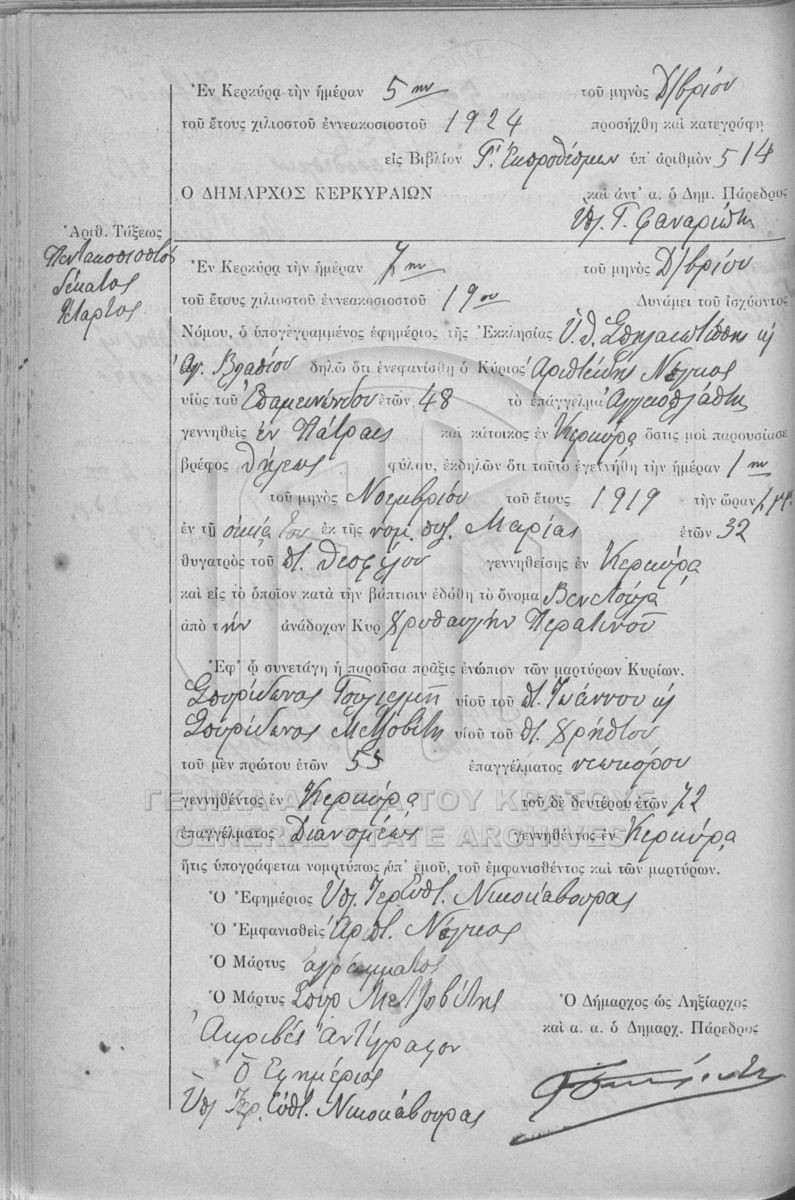 Ἐν Κερκύρᾳ τὴν ἡμέραν 5ην τοῦ μηνὸς Δ/βρίου
τοῦ ἔτους χιλιοστοῦ ἐννεακοσιοστοῦ 1924 προσήχθη καὶ κατεγράφη
εἰς Βιβλίον Γ' Ἐκπροθέσμων ὑπ' ἀριθμὸν 514
Ο ΔΗΜΑΡΧΟΣ ΚΕΡΚΥΡΑΙΩΝ καὶ ἀντ' α. ὁ Δημ. Πάρεδρος
Ὑπ. Γ. Φαναριώτης
Ἀριθ. Τάξεως
Πεντακοσιοστὸς
δέκατος
τέταρτος
Ἐν Κερκύρᾳ τὴν ἡμέραν 7ην τοῦ μηνὸς Δ/βρίου
τοῦ ἔτους χιλιοστοῦ ἐννεακοσιοστοῦ 19ου Δυνάμει τοῦ ἰσχύοντος
Νόμου, ὁ ὑπογεγραμμένος ἐφημέριος τῆς Ἐκκλησίας Ὑ. Θ. Σπηλαιωτίσσης κ
Ἁγ. Βλασίου δηλῶ ὅτι ἐνεφανίσθη ὁ Κύριος Ἀριστείδης Νέγκας
υἱὸς τοῦ Ἐπαμεινώνδου ἐτῶν 48 τὸ ἐπάγγελμα Ἀγγειοπλάστης
γεννηθεὶς ἐν Πάτραις καὶ κάτοικος ἐν Κερκύρᾳ ὅστις μοὶ παρουσίασε
βρέφος θήλεως φύλου, ἐκδηλῶν ὅτι τοῦτο ἐγεννήθη τὴν ἡμέραν 1ην
τοῦ μηνὸς Νοεμβρίου τοῦ ἔτους 1919 τὴν ὥραν
ἐν τῇ οἰκίᾳ του ἐκ τῆς νομ. συζ. Μαρίας ἐτῶν 32
θυγατρὸς τοῦ π. Θεοφίλου γεννηθείσης ἐν Κερκύρᾳ
καὶ εἰς τὸ ὁποῖον κατὰ τὴν βάπτισιν ἐδόθη τὸ ὄνομα Βεντούλα
ἀπὸ τὴν ἀνάδοχον Κυρ Χρυσαυγὴν Περατινοῦ
Ἐφ' ᾧ συνετάγη ἡ παροῦσα πρᾶξις ἐνώπιον τῶν μαρτύρων Κυρίων.
Σπυρίδωνος Γουλιελμῆ υἱοῦ τοῦ π. Ἰωάννου κ
Σπυρίδωνος Μετζοβίτη υἱοῦ τοῦ π. Χρήστου
τοῦ μὲν πρώτου ἐτῶν 55 ἐπαγγέλματος νεωκόρου
γεννηθέντος ἐν Κερκύρᾳ τοῦ δὲ δευτέρου ἐτῶν 72
ΓΕΝΙΚΑ ΑΡΧΕΙΑ ΤΟΥ ΚΡΑΤΟΥΣ
ἐπαγγέλματος Διανομέως γεννηθέντος ἐν Κερκύρᾳ
GENERAL STATE ARCHIVES
ἥτις ὑπογράφεται νομοτύπως ὑπ' ἐμοῦ, τοῦ ἐμφανισθέντος καὶ τῶν μαρτύρων.
Ὁ Ἐφημέριος Ὑπ. Ἱερ. Εὐστ. Νικοκάβουρας
Ὁ Ἐμφανισθεὶς Ἀριστ. Νέγκας
Ὁ Μάρτυς ἀγράμματος
Ὁ Μάρτυς Σπυρ Μετζοβίτης
Ὁ Δήμαρχος ὡς Ληξίαρχος
καὶ α. α. ὁ Δημαρχ. Πάρεδρος
Ἀκριβὲς Ἀντίγραφον
Ὁ Ἐφημέριος
Ὑπ. Ἱερ. Εὐστ. Νικοκάβουρας